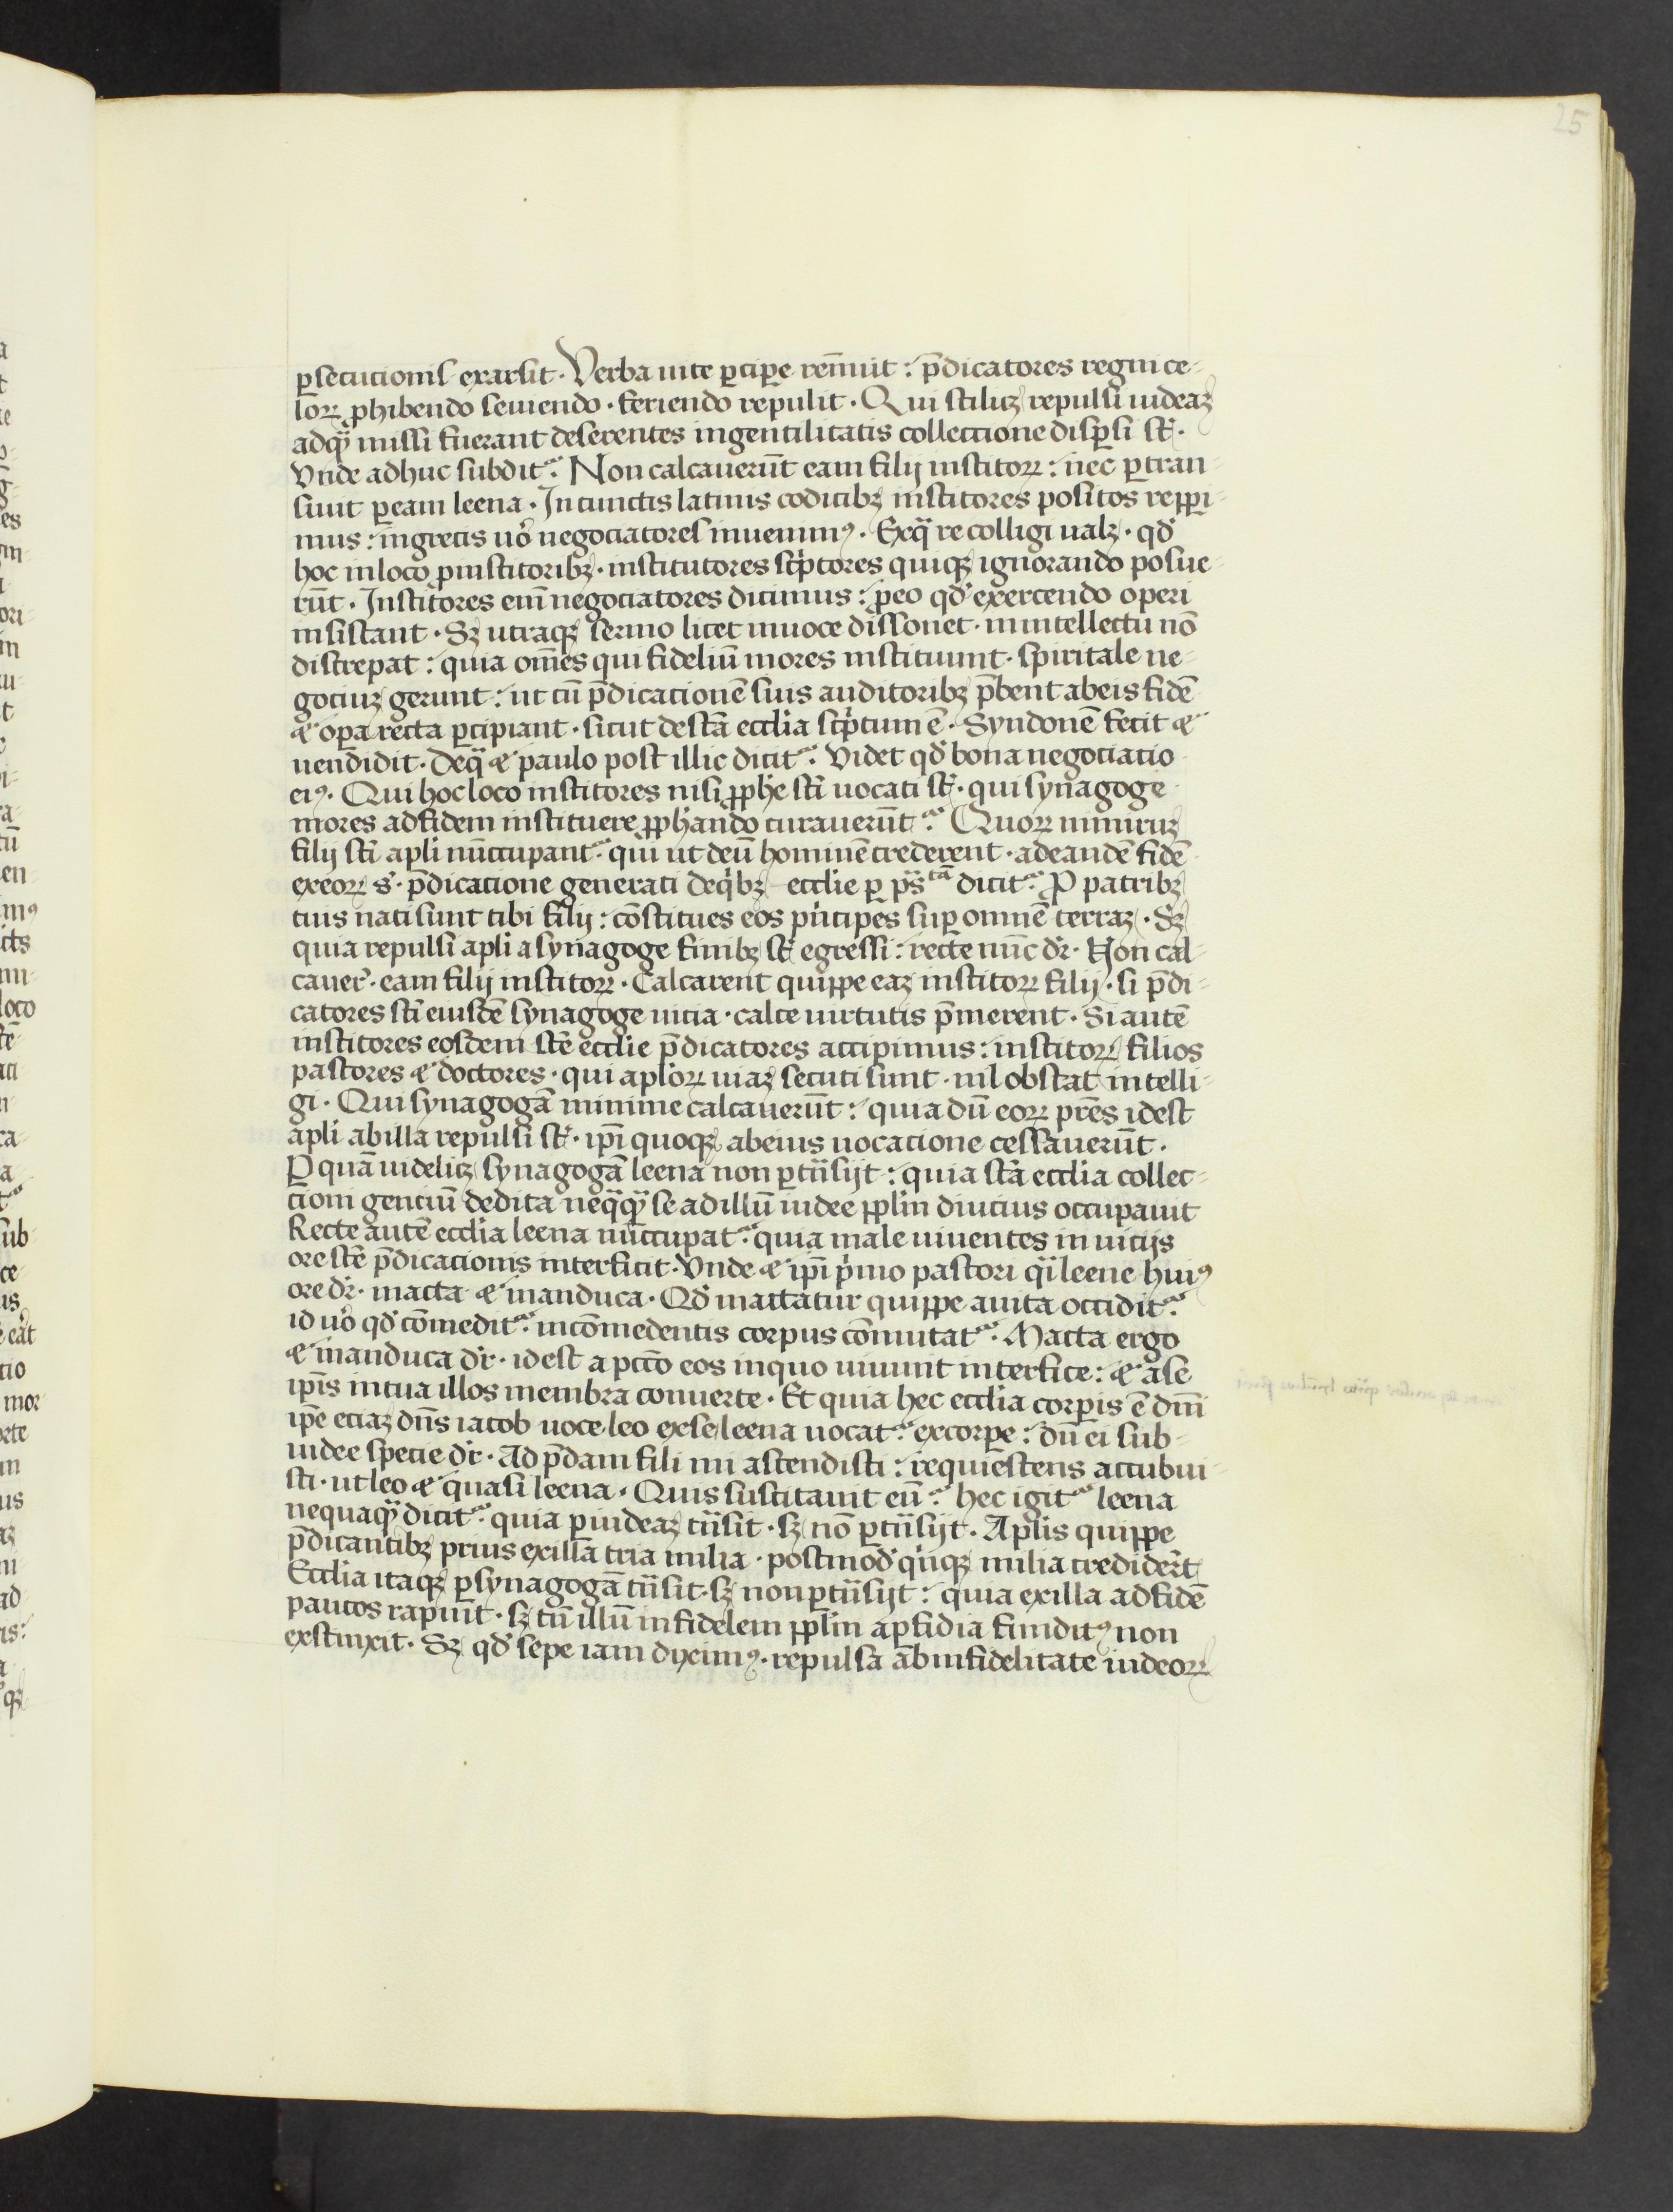 25
ꝑsecucionis exarsit. Verba uite ꝑciꝑe rēnuit: p̄dicatores regni ce-
loꝝ ꝓhibendo seuiendo. feriendo repulit. Qui scilicꝫ repulsi iudeaꝫ
adqͣꝫ missi fuerant deserentes ingentilitatis colleccione disꝑsi st̄.
Vnde adhuc subditᷣ. Non calcauerūt eam filij institoꝝ: nec ꝑtran-
siuit ꝑeam leena. Jn cunctis latinis codicibꝫ institores positos repꝑi-
mus: ingrecis uo᷎ negociatores inuenimꝰ. Exqͣ re colligi ualꝫ. qd᷎
hoc inloco ꝓinstitoribꝫ. institutores sc͛ptores quiqꝫ ignorando posue-
rūt. Jnstitores eni᷎ negociatores dicimus: ꝓeo qd᷎ exercendo operi
insistant. Sꝫ utraqꝫ sermo licet inuoce dissonet. inintellectu nō
discrepat: quia om̄es qui fideliū mores instituunt. spiritale ne-
gociuꝫ gerunt: ut cū p̄dicacionē suis auditoribꝫ p̄bent abeis fidē
⁊ oꝑa recta ꝑcipiant. sicut destā eccl̓ia sc͛ptum ē. Syndonē fecit ⁊
uendidit. Deqͣ ⁊ paulo post illic dicitᷣ. Videt qd᷎ bona negociacio
eiꝰ. Qui hoc loco institores nisi ꝓph̄e st̄i uocati st̄. qui synagoge
mores adfidem instituere ꝓph̄ando curauerūtᷣ. Quoꝝ nimiruꝫ
filij st̄i apl̓i nūccupantᷣ. qui ut deū hominē crederent. adeandē fidē
exeoꝝ s᷎. p̄dicacione generati deqi᷎bꝫ ecclie ꝑ ps̄tā dicitᷣ. P patribꝫ
tuis nati sunt tibi filij: cōstitues eos pi᷎ncipes suꝑ omnē terraꝫ. Sꝫ
quia repulsi apl̓i a synagoge finibꝫ st̄ egressi: recte nūc dr᷎. Non cal-
cauer᷎. eam filij institoꝝ. Calcarent quippe eaꝫ institoꝝ filij. si p̄di-
catores st̄i eiusdē synagoge uicia. calce uirtutis p̄merent. Si autē
institores eosdem st̄e eccl̓ie p̄dicatores accipimus: institoꝝ filios
pastores ⁊ doctores. qui apl̓oꝝ uiaꝫ secuti sunt. nil obstat intelli-
gi. Qui synagogā minime calcauerūt: quia dū eoꝝ pr̄es idest
apl̓i abilla repulsi st̄. ip̄i quoqꝫ abeius uocacione cessauerūt.
P quā uidelicꝫ synagogā leena non ꝑtūsijt: quia stā eccl̓ia collec-
cioni genciū dedita neqͣqͣꝫ se adillū iudee ppl̓m diucius occupauit
Recte autē eccl̓ia leena nūccupatᷣ. quia male uiuentes in uicijs
ore st̄e p̄dicacionis interficit. Vnde ⁊ ip̄i p͛mo pastori qͣi leene huiꝰ
ore dr᷎. macta ⁊ manduca. Qd᷎ mactatur quippe auita occiditᷣ.
id uo᷎ qd᷎ cōmeditᷣ. incōmedentis corpus cōmutatᷣ. Macta ergo
⁊ manduca dr᷎. idest a pcc̄o eos inquo uiuunt interfice: ⁊ ase
ip̄is intua illos membra conuerte. Et quia hec eccl̓ia corꝑis ē dni᷎
ip̄e eciaꝫ dn̄s iacob uoce leo exse leena uocatᷣ. excorꝑe: dū ei sub
iudee specie dr᷎. Ad p̄dam fili mi ascendisti: requiescens accubui-
sti. ut leo ⁊ quasi leena. Quis suscitauit eūᷣ. hec igitᷣ leena
nequaqͣꝫ dicitᷣ. quia ꝑiudeaꝫ tūsit. sꝫ nō ꝑtūsijt. Apl̓is quippe
p̄dicantibꝫ prius exillā tria milia. postmod᷎ qi᷎nqꝫ milia credider᷎t
Eccl̓ia itaqꝫ ꝑsynagogā tūsit. sꝫ non ꝑtūsijt: quia exilla adfidē
paucos rapuit. sꝫ tn̄ illū infidelem ppl̓m aꝑfidia funditꝰ non
exstinxit. Sꝫ qd᷎ sepe iam diximꝰ. repulsa abinfidelitate iudeoꝝ